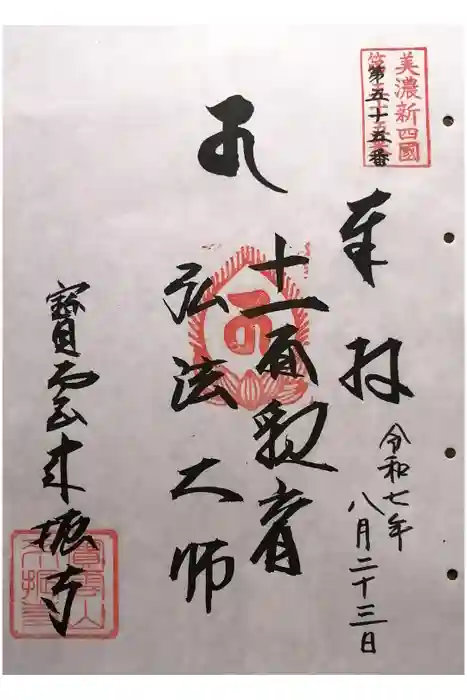 美濃新四國
第五十五番
奉拝
令和七年
八月二十三日
十一面観音
弘法大師
寶雲来振寺